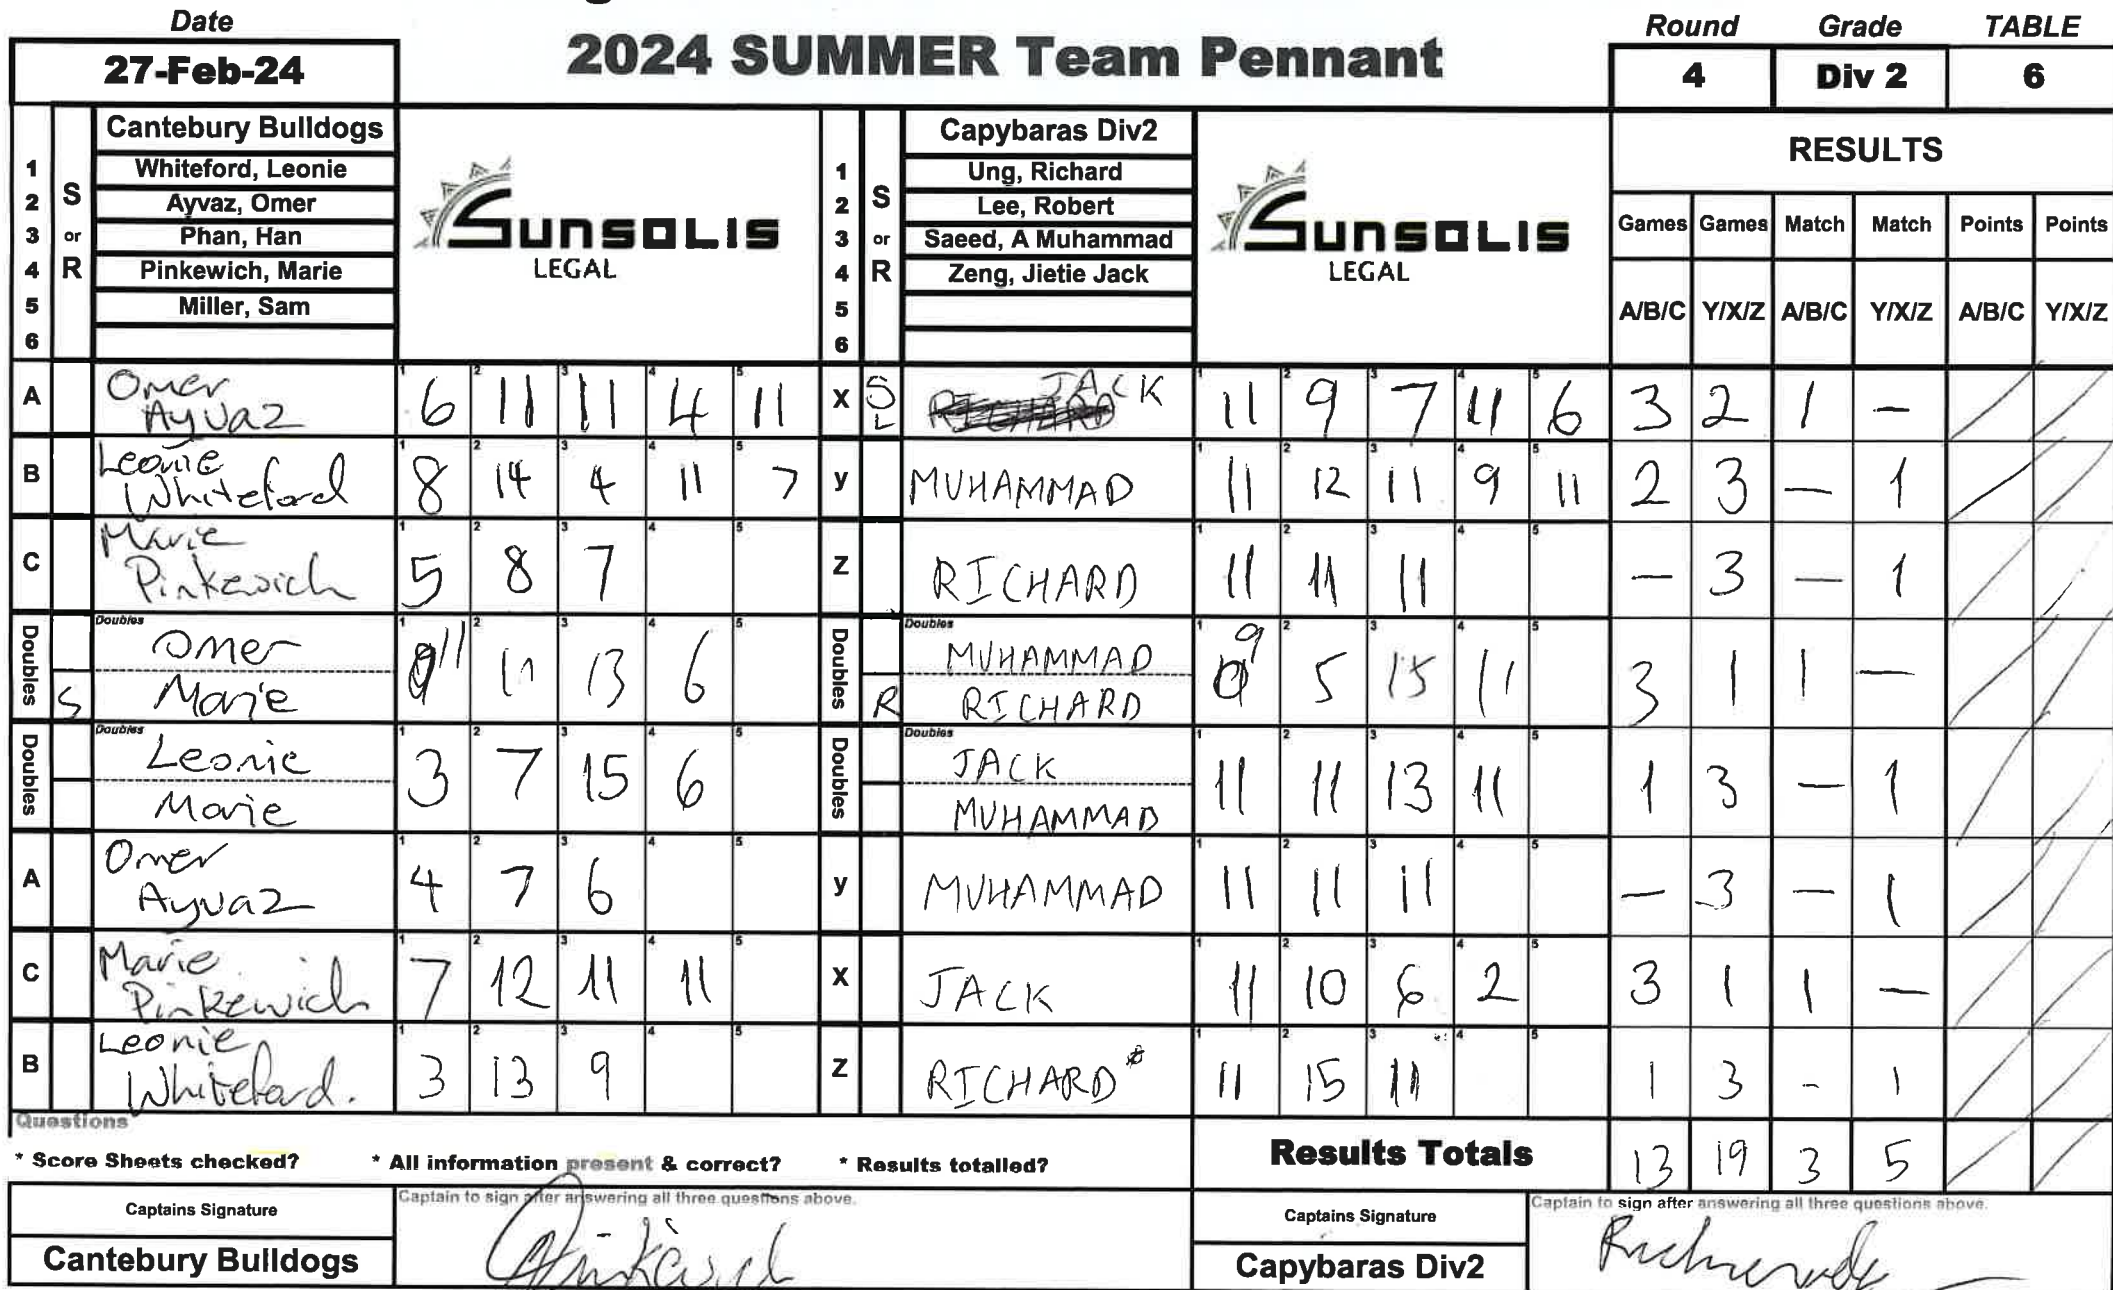 Date
27-Feb-24
2024 SUMMER Team Pennant
Round Grade TABLE
4 Div 2 6
1 2 3 4 5 6
S or R
Cantebury Bulldogs
Whiteford, Leonie
Ayvaz, Omer
Phan, Han
Pinkewich, Marie
Miller, Sam
SUNSOLIS
LEGAL
1 2 3 4 5 6
S or R
Capybaras Div2
Ung, Richard
Lee, Robert
Saeed, A Muhammad
Zeng, Jietie Jack
SUNSOLIS
LEGAL
RESULTS
Games Games Match Match Points Points
A/B/C Y/X/Z A/B/C Y/X/Z A/B/C Y/X/Z
A Omer Ayvaz 6 11 11 4 11 X JACK 11 9 7 11 6 3 2 1 –
B Leonie Whiteford 8 14 4 11 7 y MUHAMMAD 11 12 11 9 11 2 3 – 1
C Marie Pinkewich 5 8 7 Z RICHARD 11 11 11 – 3 – 1
Doubles Omer 11 11 13 6 Doubles MUHAMMAD 9 5 15 11 3 1 1 –
S Marie R RICHARD
Doubles Leonie 3 7 15 6 Doubles JACK 11 11 13 11 1 3 – 1
Marie MUHAMMAD
A Omer Ayvaz 4 7 6 y MUHAMMAD 11 11 11 – 3 – 1
C Marie Pinkewich 7 12 11 11 X JACK 11 10 6 2 3 1 1 –
B Leonie Whiteford. 3 13 9 Z RICHARD* 11 15 11 1 3 - 1
Questions
* Score Sheets checked? * All information present & correct? * Results totalled?
Results Totals 13 19 3 5
Captains Signature
Captain to sign after answering all three questions above.
Cantebury Bulldogs
Captains Signature
Captain to sign after answering all three questions above.
Capybaras Div2